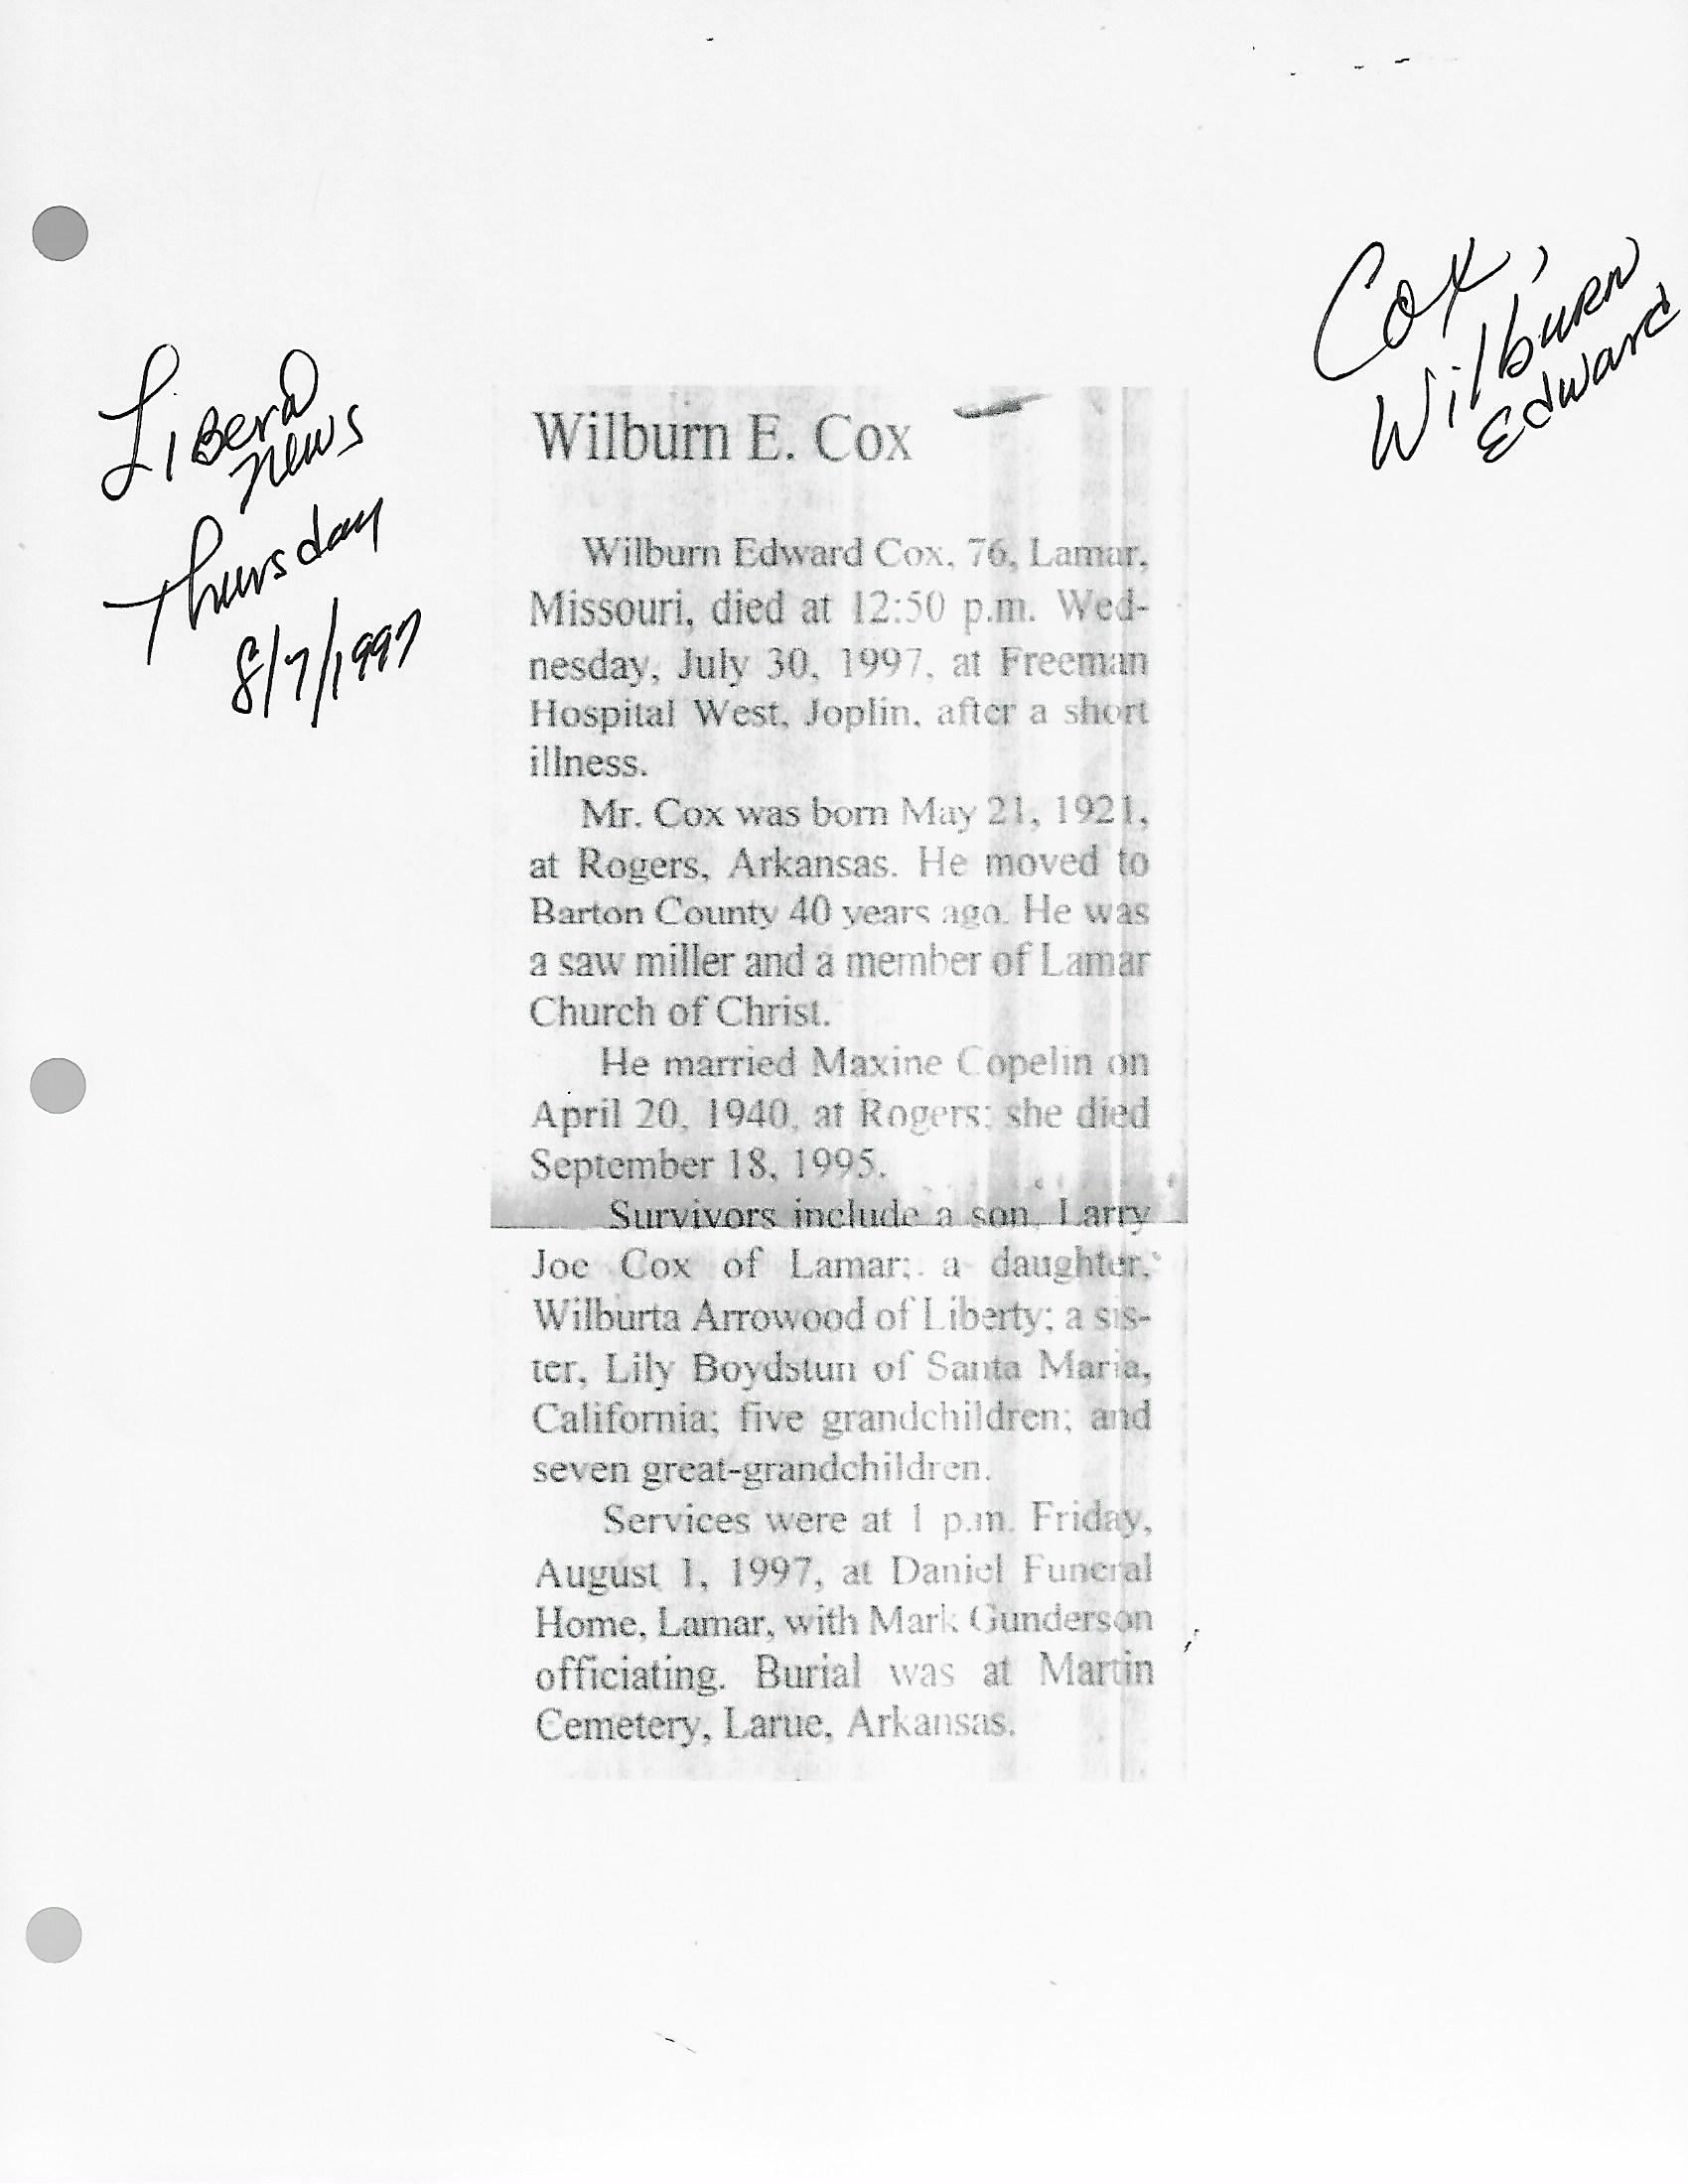 Cox,
Wilburn
Edward
Liberal
News
Thursday
8/7/1997
Wilburn E. Cox
Wilburn Edward Cox, 76, Lamar,
Missouri, died at 12:50 p.m. Wed-
nesday, July 30, 1997, at Freeman
Hospital West, Joplin, after a short
illness.
Mr. Cox was born May 21, 1921,
at Rogers, Arkansas. He moved to
Barton County 40 years ago. He was
a saw miller and a member of Lamar
Church of Christ.
He married Maxine Copelin on
April 20, 1940, at Rogers; she died
September 18, 1995.
Survivors include a son, Larry
Joe Cox of Lamar; a daughter,
Wilburta Arrowood of Liberty; a sis-
ter, Lily Boydstun of Santa Maria,
California; five grandchildren; and
seven great-grandchildren.
Services were at 1 p.m. Friday,
August 1, 1997, at Daniel Funeral
Home, Lamar, with Mark Gunderson
officiating. Burial was at Martin
Cemetery, Larue, Arkansas.